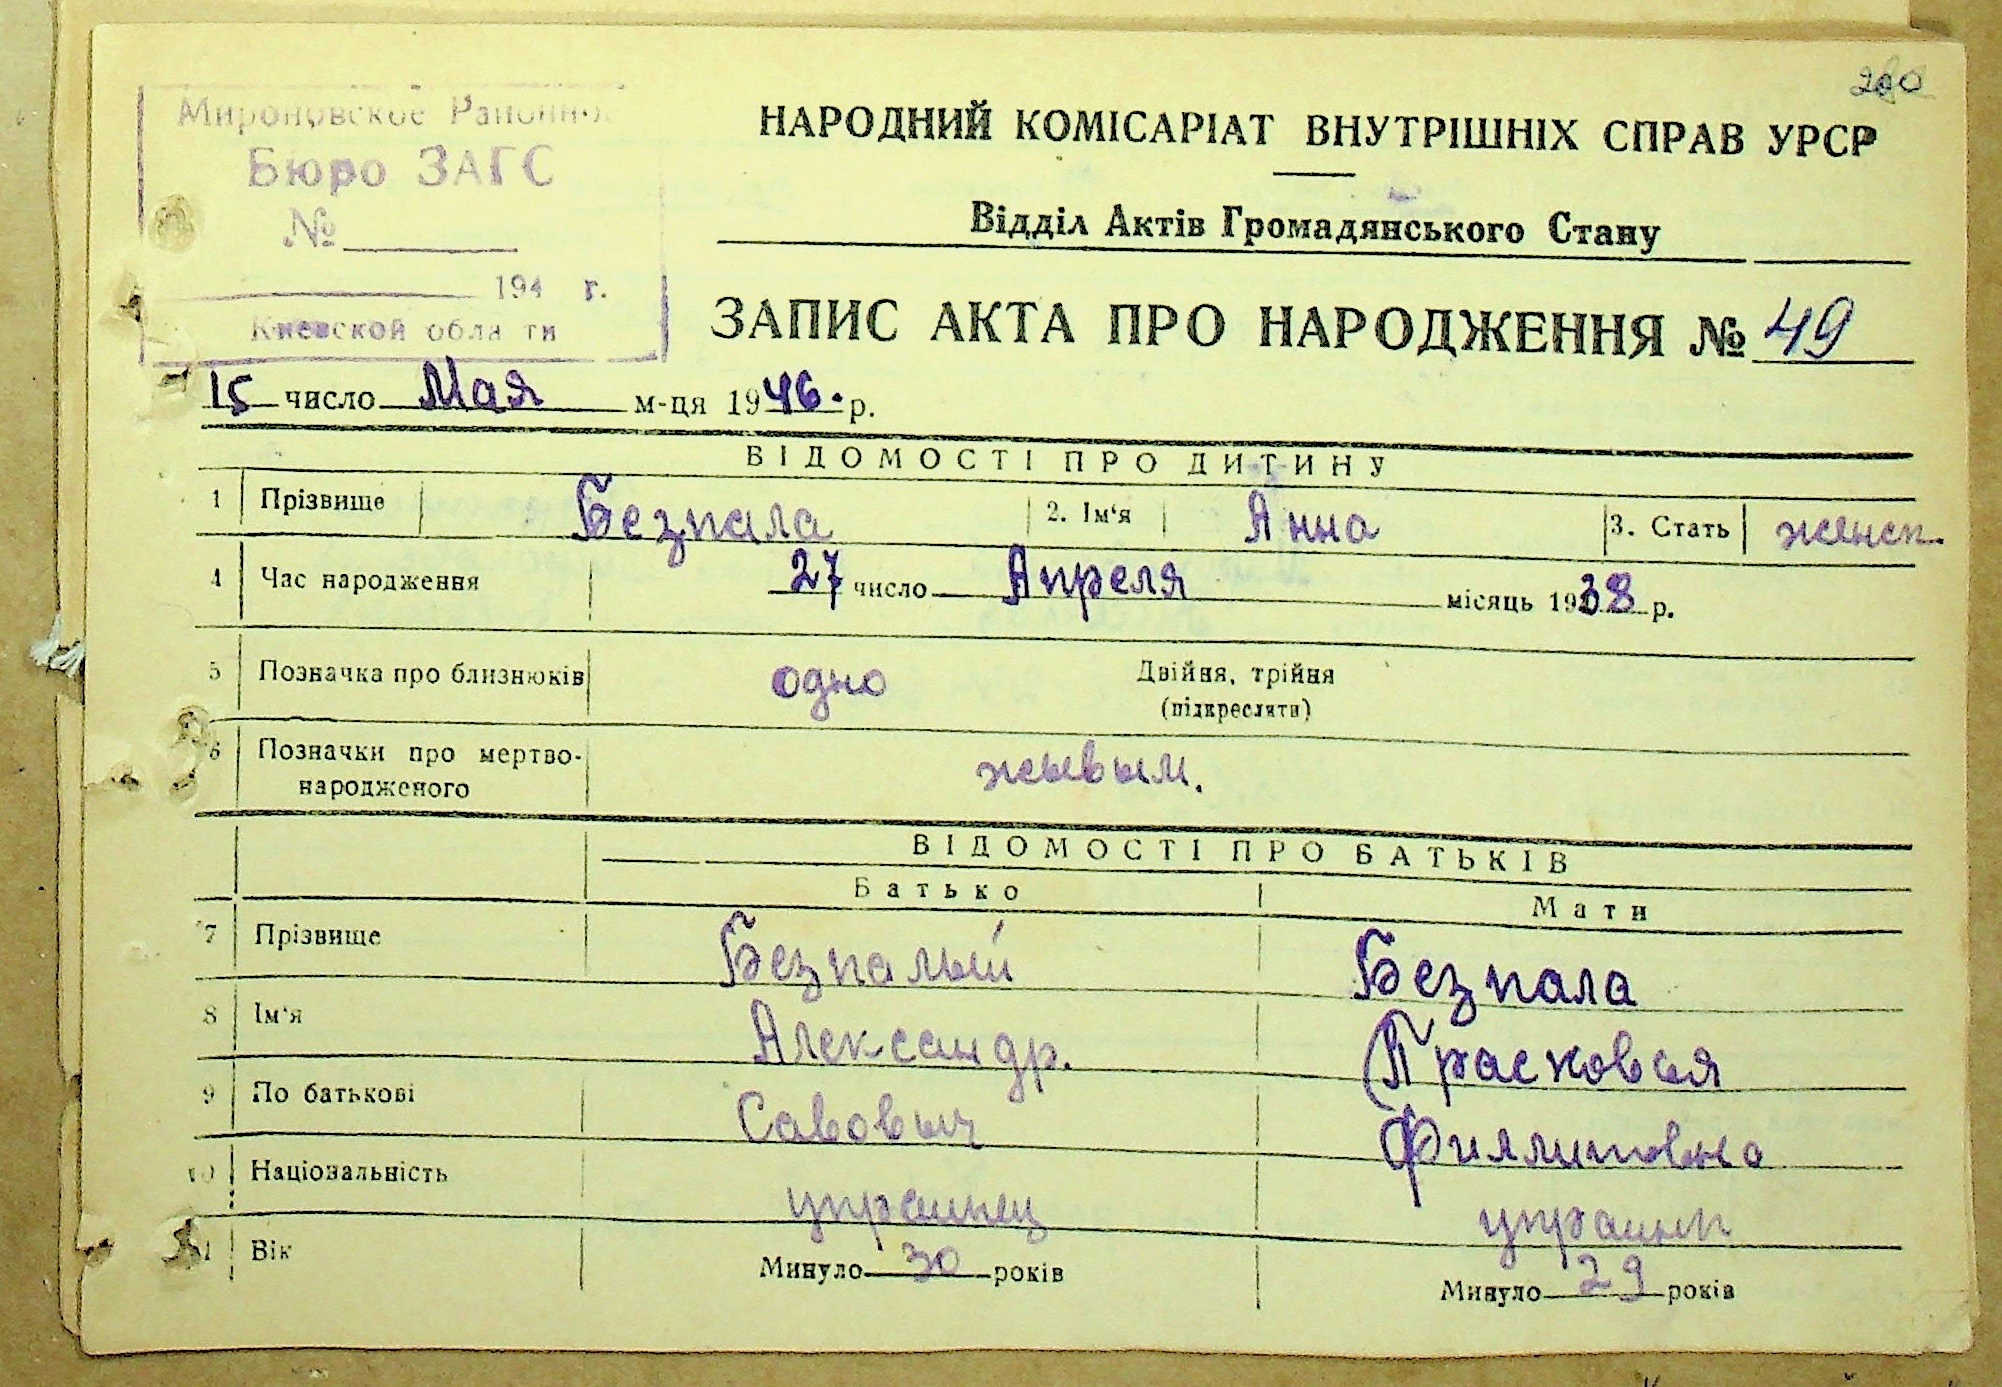 200
Мироновское Районное
Бюро ЗАГС
№
194 г.
Киевской области
НАРОДНИЙ КОМІСАРІАТ ВНУТРІШНІХ СПРАВ УРСР
Відділ Актів Громадянського Стану
ЗАПИС АКТА ПРО НАРОДЖЕННЯ № 49
15 число Мая м-ця 1946. р.
ВІДОМОСТІ ПРО ДИТИНУ
1 Прізвище Безпала 2. Ім'я Анна 3. Стать женск.
4 Час народження 27 число Апреля місяць 1938 р.
5 Позначка про близнюків одно Двійня, трійня
(підкреслити)
6 Позначки про мертво-
народженого жывым.
ВІДОМОСТІ ПРО БАТЬКІВ
Батько Мати
7 Прізвище Безпалый Безпала
8 Ім'я Александр. Прасковья
9 По батькові Савовыч Филлиповна
10 Національність украинец украинк
11 Вік Минуло 30 років Минуло 29 років